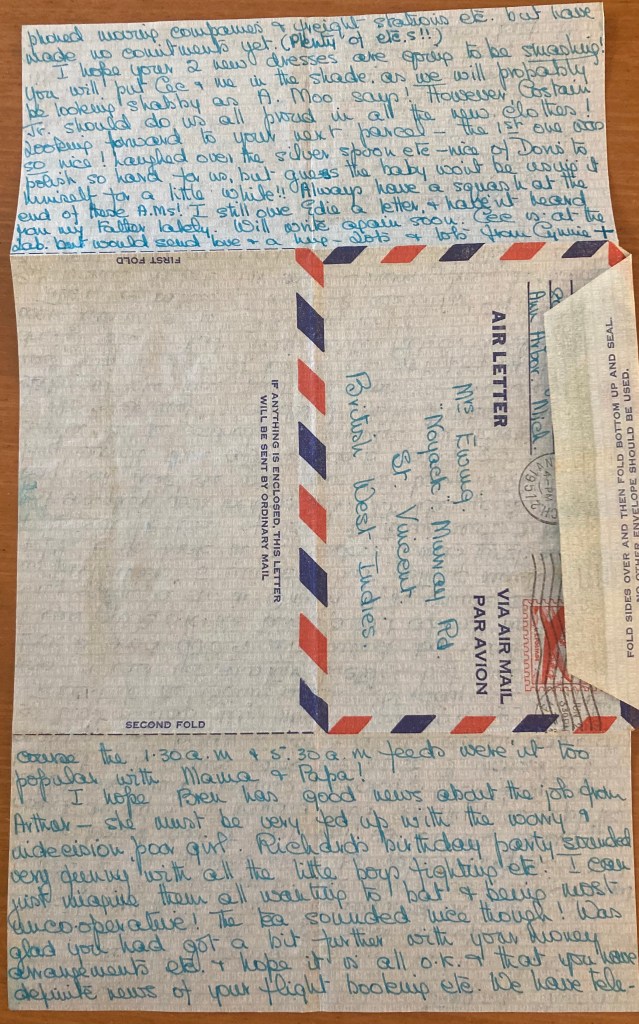 phoned moving companies & freight stations etc. but have
made no comitments yet. (Plenty of etc.s!!)
I hope your 2 new dresses are going to be smashing!
you will put Cec & me in the shade, as we will probably
be looking shabby as A. Moo says! However Costain
Jr. should do us all proud in all the new clothes!
Looking forward to your next parcel - the 1st one was
so nice! Laughed over the silver spoon etc - nice of Doris to
polish so hard for us, but guess the baby wont be using it
himself for a little while!! Always have a squash at the
end of these A.Ms! I still owe Edie a letter, & have'nt heard
from my Father lately. Will write again soon. Cec is at the
lab. but would send love & a hug - Lots & lots from Cynnie +
FIRST FOLD
IF ANYTHING IS ENCLOSED, THIS LETTER
WILL BE SENT BY ORDINARY MAIL
SECOND FOLD
AIR LETTER
VIA AIR MAIL
PAR AVION
Ann Arbor. Mich.
1951
Mrs Ewing.
"Noyack" Murray Rd.
St. Vincent.
British West Indies.
FOLD SIDES OVER AND THEN FOLD BOTTOM UP AND SEAL.
NO OTHER ENVELOPE SHOULD BE USED.
course the 1.30 a.m & 5.30 a.m feeds were'nt too
popular with Mama & Papa!
I hope Bren has good news about the job from
Arthur - she must be very fed up with the worry &
indecision poor girl. Richard's birthday party sounded
very funny with all the little boys fighting etc! I can
just imagine them all wanting to bat & being most
unco-operative! The tea sounded nice though! Was
glad you had got a bit further with your money
arrangements etc. & hope it is all o.k. & that you have
definite news of your flight booking etc. We have tele-